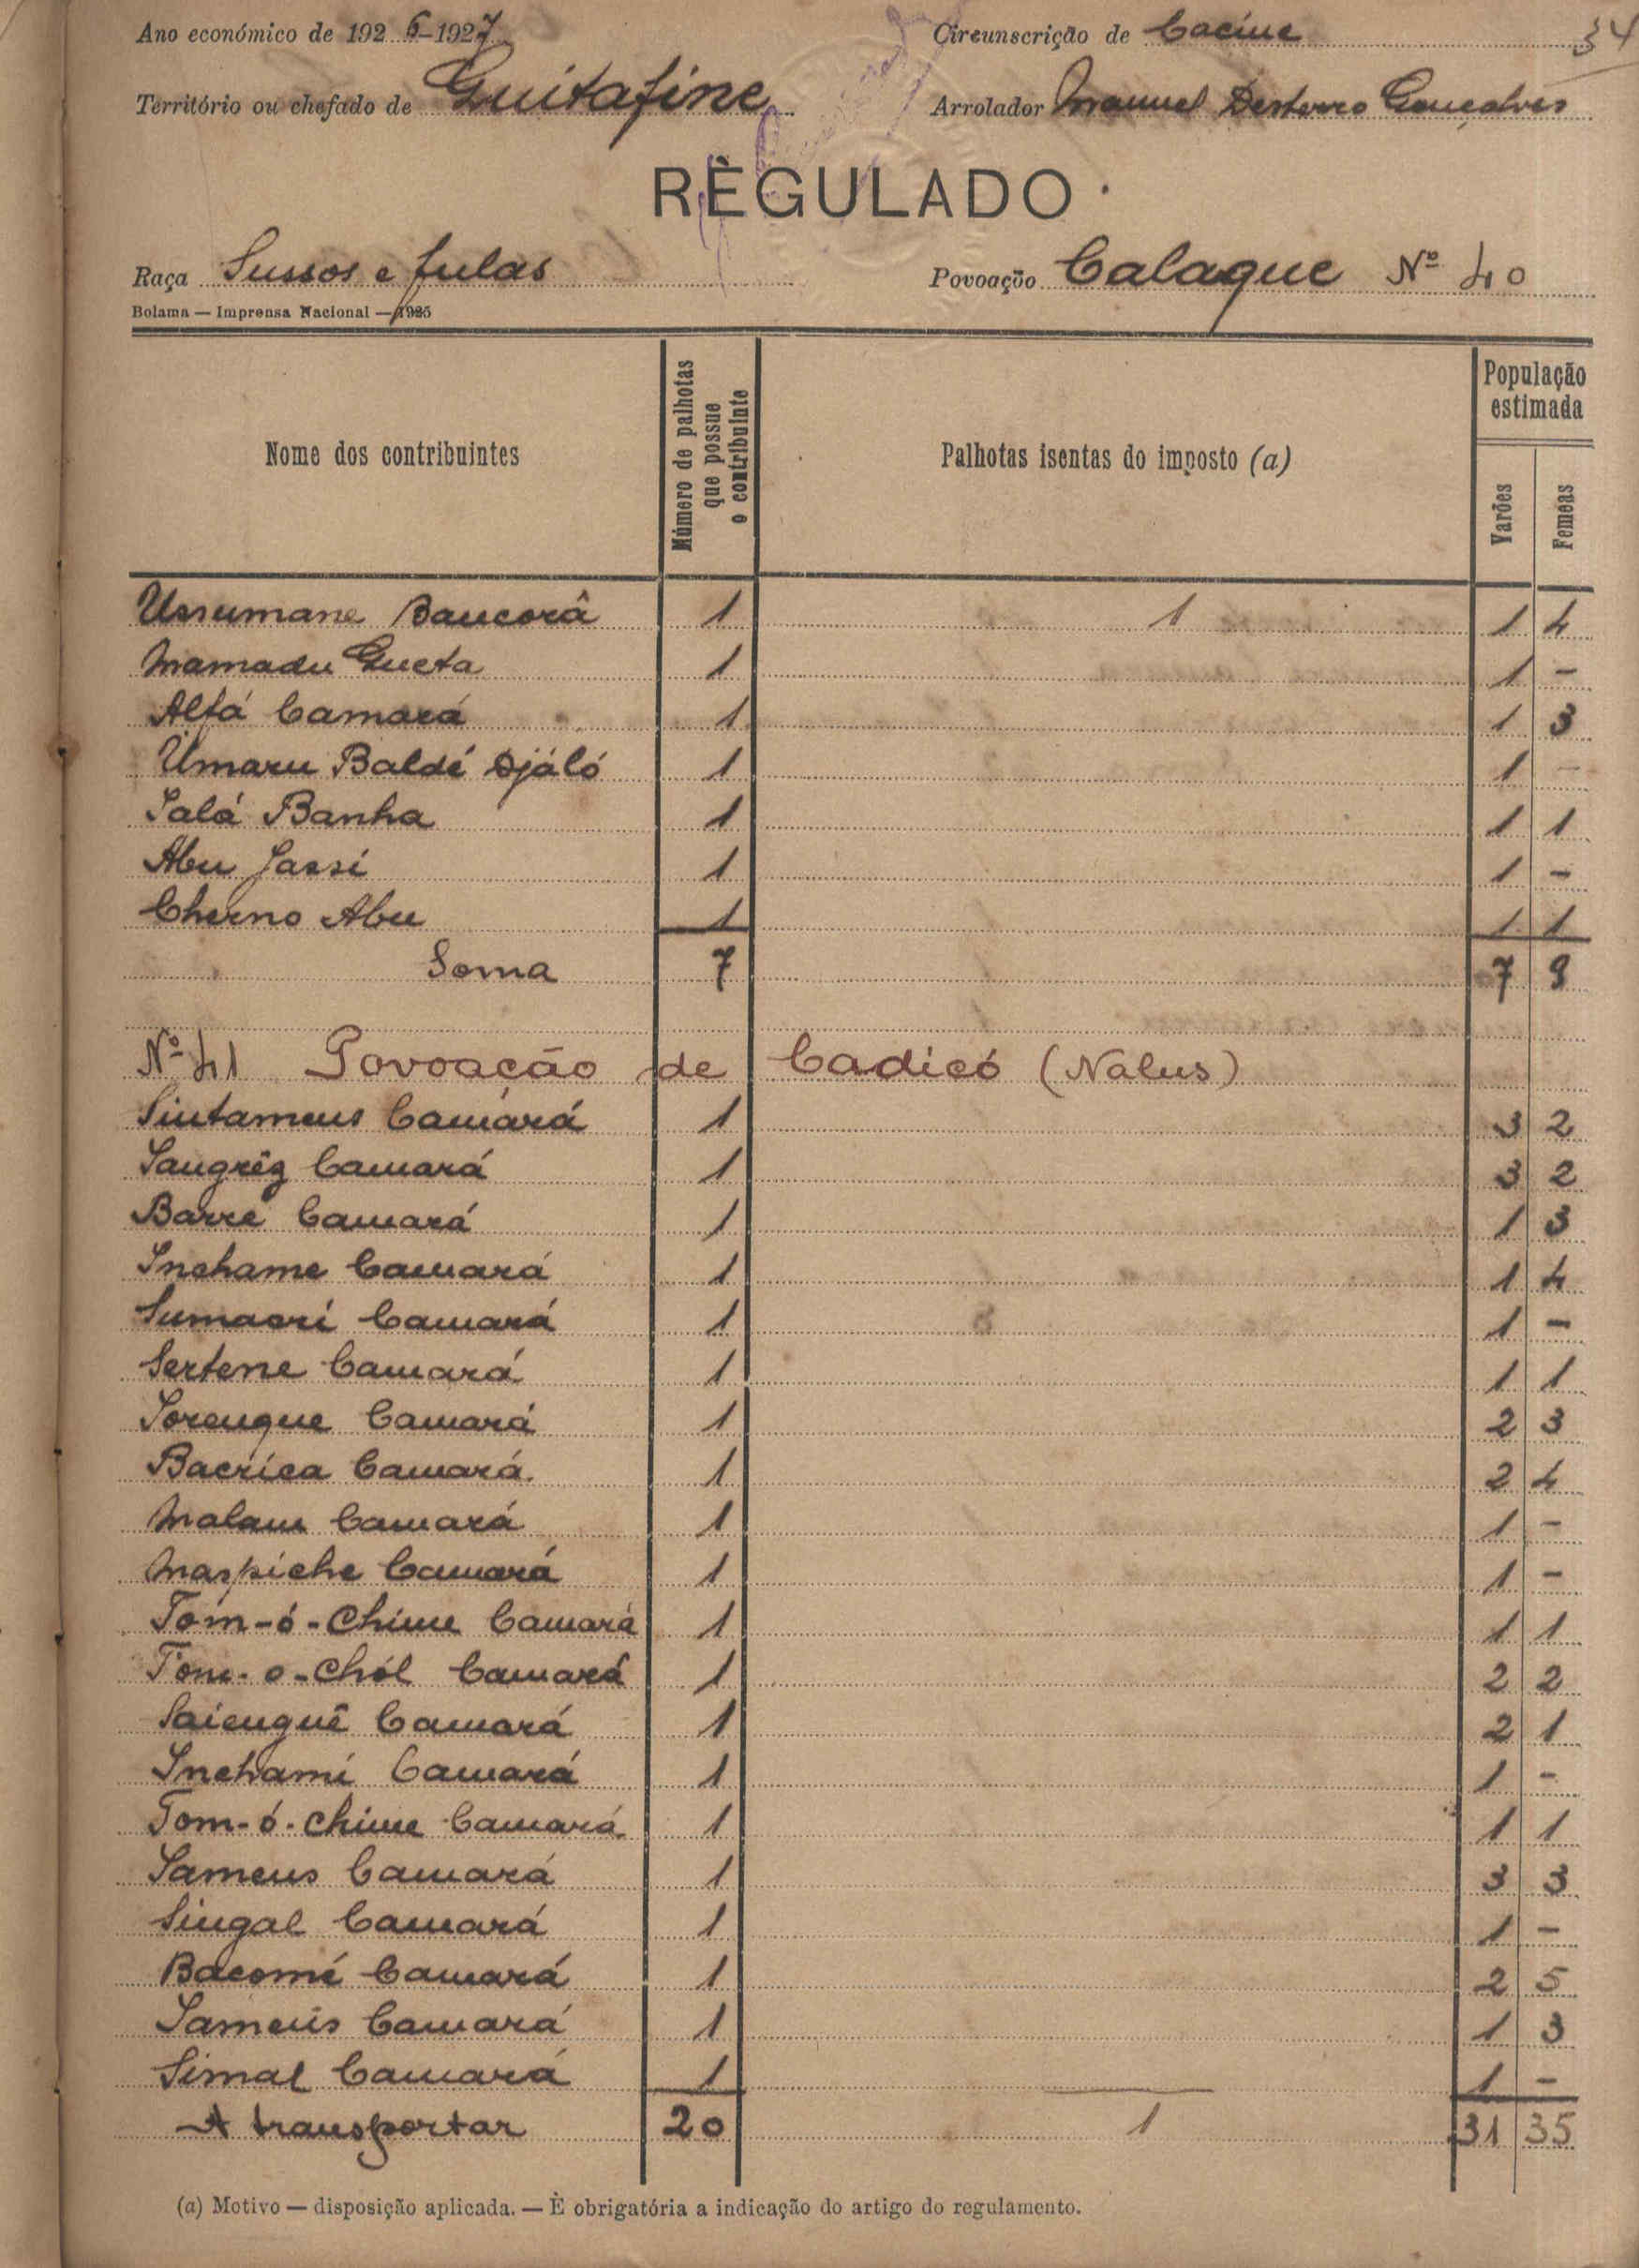 Ano económico de 1926-1927 Circunscrição de Cacine 34
Território ou chefado de Guitafine Arrolador Manuel Desterro Gonçalves
RÈGULADO
Raça Sussos e fulas Povoação Calaque Nº 40
Bolama — Imprensa Nacional — 1925
Nome dos contribuintes Número de palhotas que possue o contribuinte Palhotas isentas do imposto (a) População estimada
Varões Femeas
Ussumane Bancorâ 1 1 1 4
Mamadu Gueta 1 1 -
Alfá Camará 1 1 3
Umaru Baldé Djáló 1 1 -
Salá Banha 1 1 1
Abu Jassi 1 1 -
Cherno Abu 1 1 1
Soma 7 7 9
Nº 41 Povoacão de Cadicó (Nalus)
Sintameus Camará 1 3 2
Sangrêz Camará 1 3 2
Barré Camará 1 1 3
Inchame Camará 1 1 4
Sumaorí Camará 1 1 -
Sertene Camará 1 1 1
Sorenque Camará 1 2 3
Bacríca Camará 1 2 4
Malam Camará 1 1 -
Maspiche Camará 1 1 -
Tóm-ó-Chime Camará 1 1 1
Tom-o-Chól Camará 1 2 2
Saienguê Camará 1 2 1
Inchamí Camará 1 1 -
Tom-ó-chime Camará 1 1 1
Sameus Camará 1 3 3
Singal Camará 1 1 -
Bacomé Camará 1 2 5
Sameus Camará 1 1 3
Simal Camará 1 1 -
A transportar 20 1 31 35
(a) Motivo — disposição aplicada. — È obrigatória a indicação do artigo do regulamento.